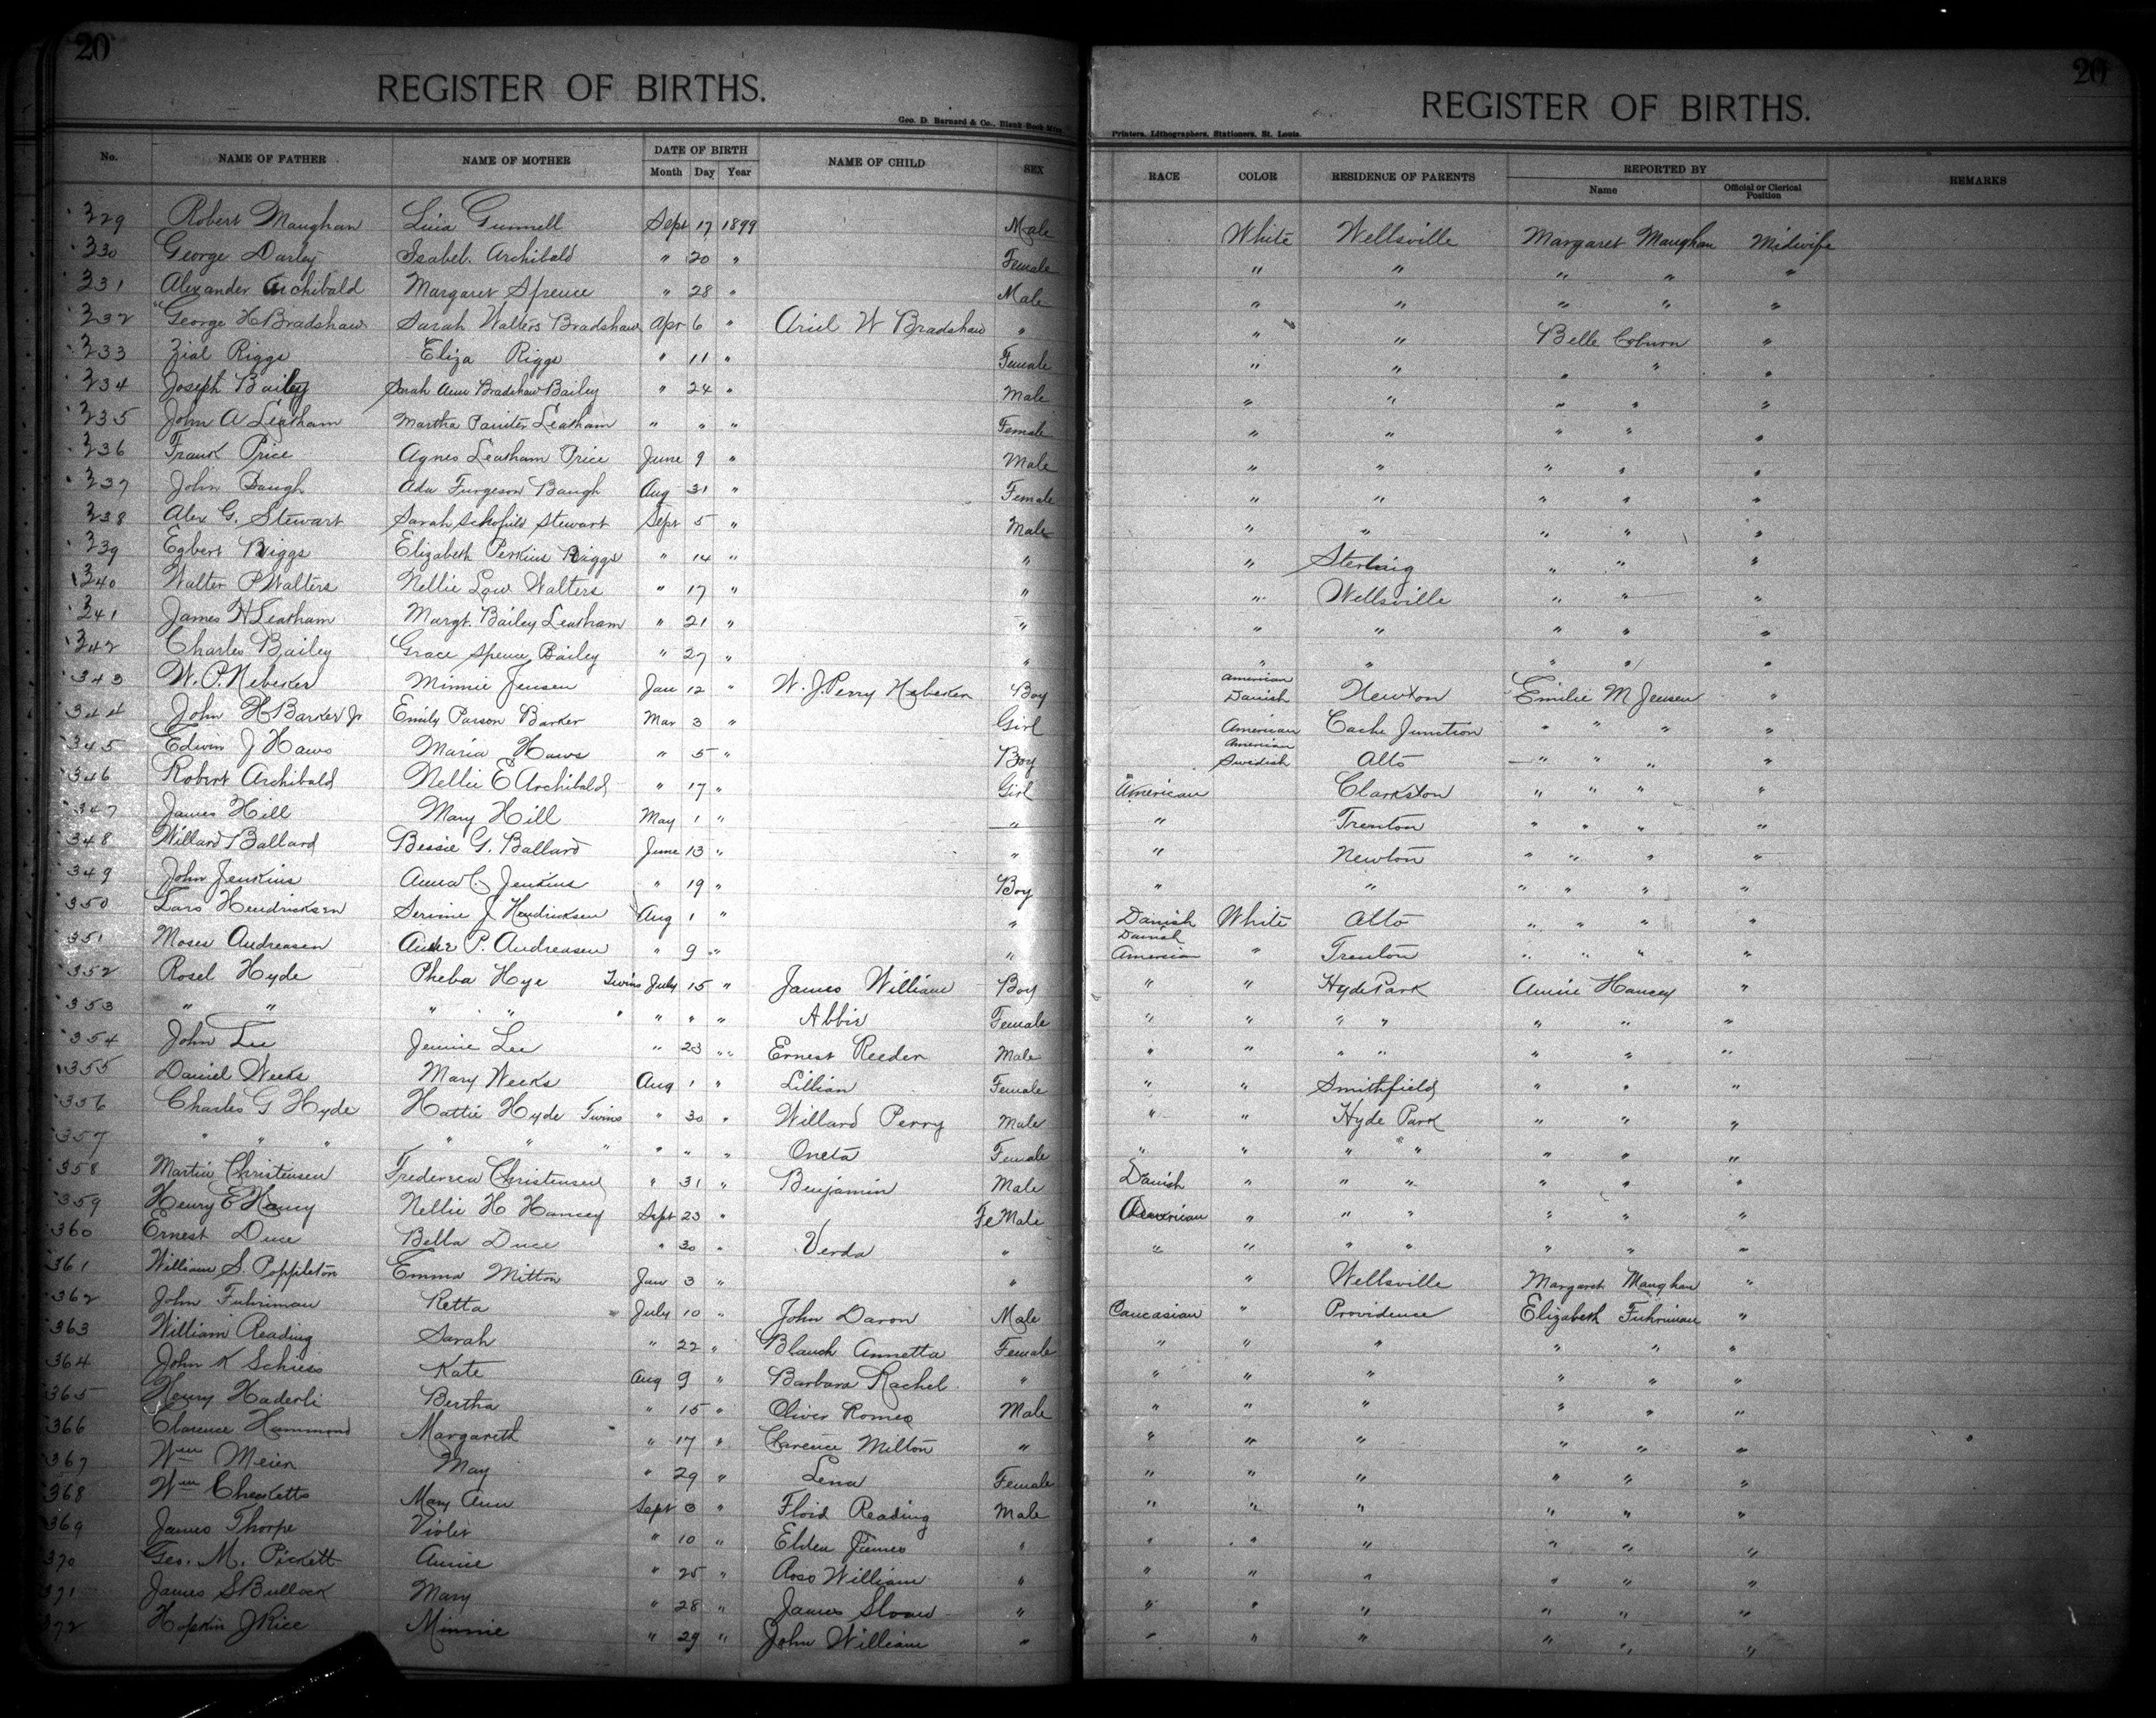 20
REGISTER OF BIRTHS.
Geo. D. Barnard & Co., Blank Book Mfrs.
No. NAME OF FATHER NAME OF MOTHER DATE OF BIRTH Month Day Year NAME OF CHILD SEX
20
REGISTER OF BIRTHS.
Printers, Lithographers, Stationers, St. Louis.
RACE COLOR RESIDENCE OF PARENTS REPORTED BY Name Official or Clerical Position REMARKS
329 Robert Maughan Gunnell Sept 17 1899 Male White Wellsville Margaret Maughan Midwife
330 George Darley Isabel. Archibald " 20 " Female " " " " "
331 Alexander Archibald Margaret Spence " 28 " Male " " " " "
332 George H Bradshaw Sarah Walters Bradshaw Apr 6 " Ariel W Bradshaw " " " Belle Coburn "
333 Zial Riggs Eliza Riggs " 11 " Female " " " " "
334 Joseph Bailey Sarah Ann Bradshaw Bailey " 24 " Male " " " " "
335 John A Leatham Martha Painter Leatham " " " Female " " " " "
336 Frank Price Agnes Leatham Price June 9 " Male " " " " "
337 John Baugh Ada Furgeson Baugh Aug 31 " Female " " " " "
338 Alex G. Stewart Sarah Schofield Stewart Sept 5 " Male " " " " "
339 Egbert Riggs Elizabeth Perkins Riggs " 14 " " " Sterling " " "
340 Walter P Walters Nellie Low Walters " 17 " " " Wellsville " " "
341 James H Leatham Margt. Bailey Leatham " 21 " " " " " " "
342 Charles Bailey Grace Spence Bailey " 27 " " " " " " "
343 W. P. Nebeker Minnie Jensen Jan 12 " W. J. Perry Nebeker Boy American Danish Newton Emilie M Jensen "
344 John H Barker Jr Emily Parson Barker Mar 3 " Girl American Cache Junction " " " "
345 Edwin J Haws Maria Haws " 5 " Boy American Swedish Alto " " " "
346 Robert Archibald Nellie E Archibald " 17 " Girl American Clarkston " " " "
347 James Hill Mary Hill May 1 " " " Trenton " " " "
348 Willard Ballard Bessie G. Ballard June 13 " " " Newton " " " "
349 John Jenkins Anna C. Jenkins " 19 " Boy " " " " " "
350 Lars Hendricksen Serine J Hendricksen Aug 1 " " Danish White Alto " " " "
351 Moses Andreasen P. Andreasen " 9 " " Danish American " Trenton " " " "
352 Rosel Hyde Pheba Hye Twins July 15 " James William Boy " " Hyde Park Annie Hancey "
353 " " " " " " " " Abbie Female " " " " " " "
354 John Lee Jennie Lee " 23 " Ernest Reeder Male " " " " " " "
355 Daniel Weeks Mary Weeks Aug 1 " Lillian Female " " Smithfield " " "
356 Charles G Hyde Hattie Hyde Twins " 30 " Willard Perry Male " " Hyde Park " " "
357 " " " " " " " " " Oneta Female " " " " " " "
358 Martin Christensen Frederica Christensen " 31 " Benjamin Male Danish " " " " " "
359 Henry E Hancy Nellie H Hancey Sept 23 " FeMale American " " " " " "
360 Ernest Duce Bella Duce " 30 " Verda " " " " " " " "
361 William S. Poppleton Emma Mitton Jan 3 " " " Wellsville Margaret Maughan "
362 John Fuhriman Retta " July 10 " John Daron Male Caucasian " Providence Elizabeth Fuhriman "
363 William Reading Sarah " 22 " Blanch Annetta Female " " " " " "
364 John K Schiess Kate Aug 9 " Barbara Rachel " " " " " " "
365 Henry Haderli Bertha " 15 " Oliver Romeo Male " " " " " "
366 Clarence Hammond Margareth " 17 " Clarence Milton " " " " " " "
367 Wm Meier May " 29 " Lena Female " " " " " "
368 Wm Checketts Mary Ann Sept 3 " Floid Reading Male " " " " " "
369 James Thorpe Violet " 10 " Elden James " " " " " " "
370 Geo. M. Pickett Annie " 25 " Ross William " " " " " " "
371 James S Bullock Mary " 28 " James Sloan " " " " " " "
372 Hopkin J Rice Minnie " 29 " John William " " " " " " "